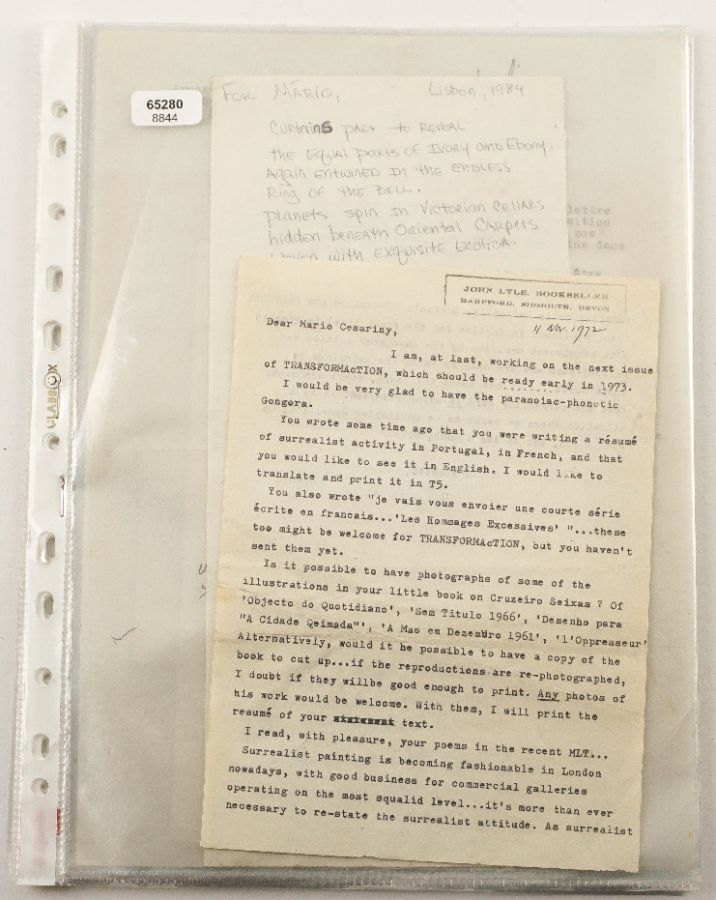 65280
8844
FOR MARIO,
Lisbon, 1984
CURTAINS PART to REVEAL
the Equal parts of IVORY and Ebony.
Again ENTWINED IN the ENDLESS
Ring of the BELL.
planets spin in Victorian CELLARS
hidden beneath Oriental Carpets
with Exquisite Erotica.
lettre
pas
JOHN LYLE, BOOKSELLER
HARPFORD, SIDMOUTH, DEVON
11 Nov. 1972
Dear Mario Cesariny,
I am, at last, working on the next issue
of TRANSFORMAcTION, which should be ready early in 1973.
I would be very glad to have the paranoiac-phonetic
Gongora.
You wrote some time ago that you were writing a résumé
of surrealist activity in Portugal, in French, and that
you would like to see it in English. I would like to
translate and print it in T5.
You also wrote "je vais vous envoier une courte série
écrite en francais...'Les Hommages Excessives' "...these
too might be welcome for TRANSFORMAcTION, but you haven't
sent them yet.
Is it possible to have photographs of some of the
illustrations in your little book on Cruzeiro Seixas ? Of
'Objecto do Quotidiano', 'Sem Titulo 1966', 'Desenho para
"A Cidade Qeimada"', 'A Mao em Dezembro 1961', 'l'Oppresseur'
Alternatively, would it be possible to have a copy of the
book to cut up...if the reproductions are re-photographed,
I doubt if they willbe good enough to print. Any photos of
his work would be welcome. With them, I will print the
resumé of your text.
I read, with pleasure, your poems in the recent MLT...
Surrealist painting is becoming fashionable in London
nowadays, with good business for commercial galleries
operating on the most squalid level...it's more than ever
necessary to re-state the surrealist attitude. As surrealist